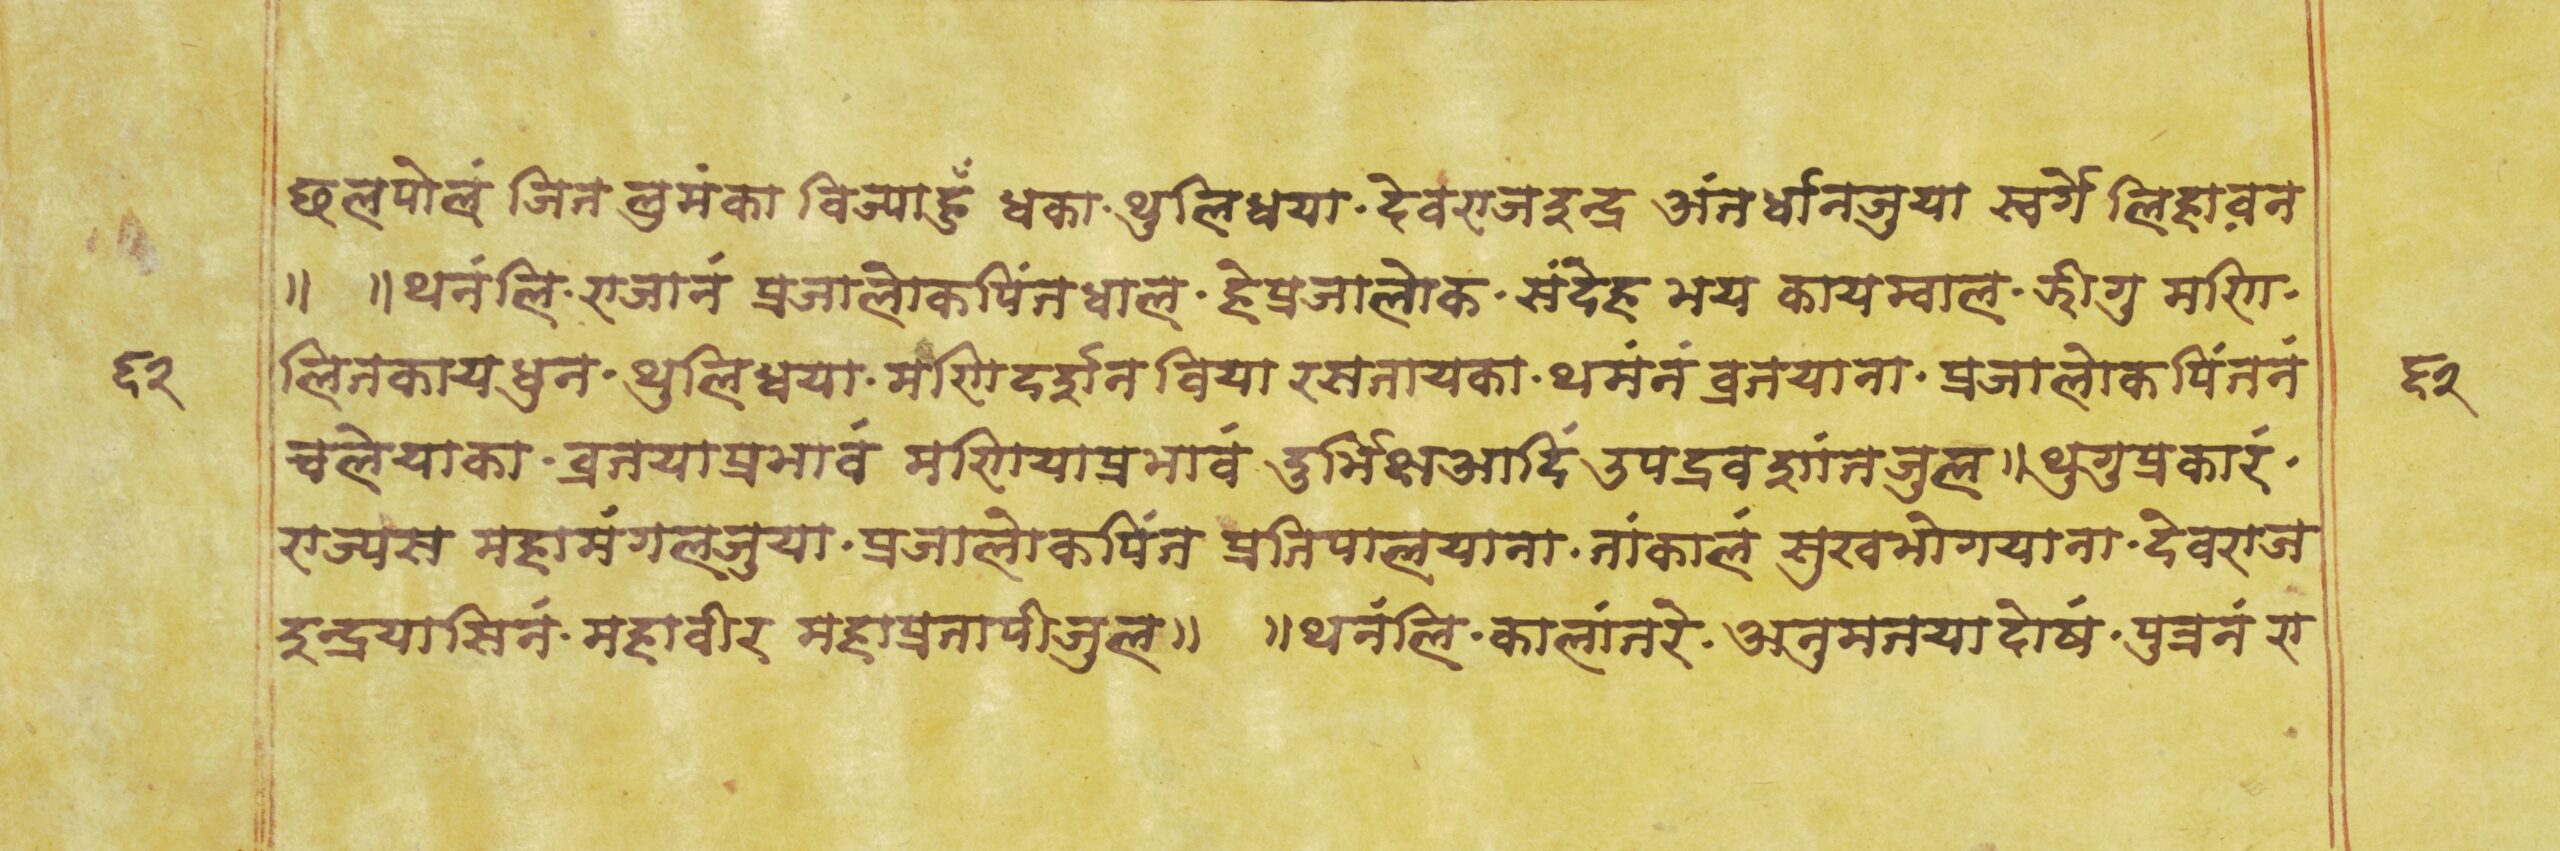 छलपोलं जिन लुमंका विज्याहुँ धका· थुलिधया· देवराजइन्द्र अंतर्धानजुया स्वर्गे लिहावन
॥ ॥ थनंलि· राजानं प्रजालोकपिंतधाल· हेप्रजालोक· संदेह भय कायम्वाल· झीगु मणि·
६२ लितकायधुन· थुलिधया· मणिदर्शन विया रसतायका· थमंनं व्रतयाना· प्रजालोकपिंतनं ६२
चलेयाका· व्रतयाप्रभावं मणियाप्रभावं दुर्भिक्षआदिं उपद्रव शांतजुल॥ थुगुप्रकारं·
राज्यस महामंगलजुया· प्रजालोकपिंत प्रतिपालयाना· तांकालं सुखभोगयाना· देवराज
इन्द्रयासिनं· महावीर महाप्रतापीजुल॥ ॥ थनंलि· कालांतरे· अनुमतयादोषं· पुत्रनं रा